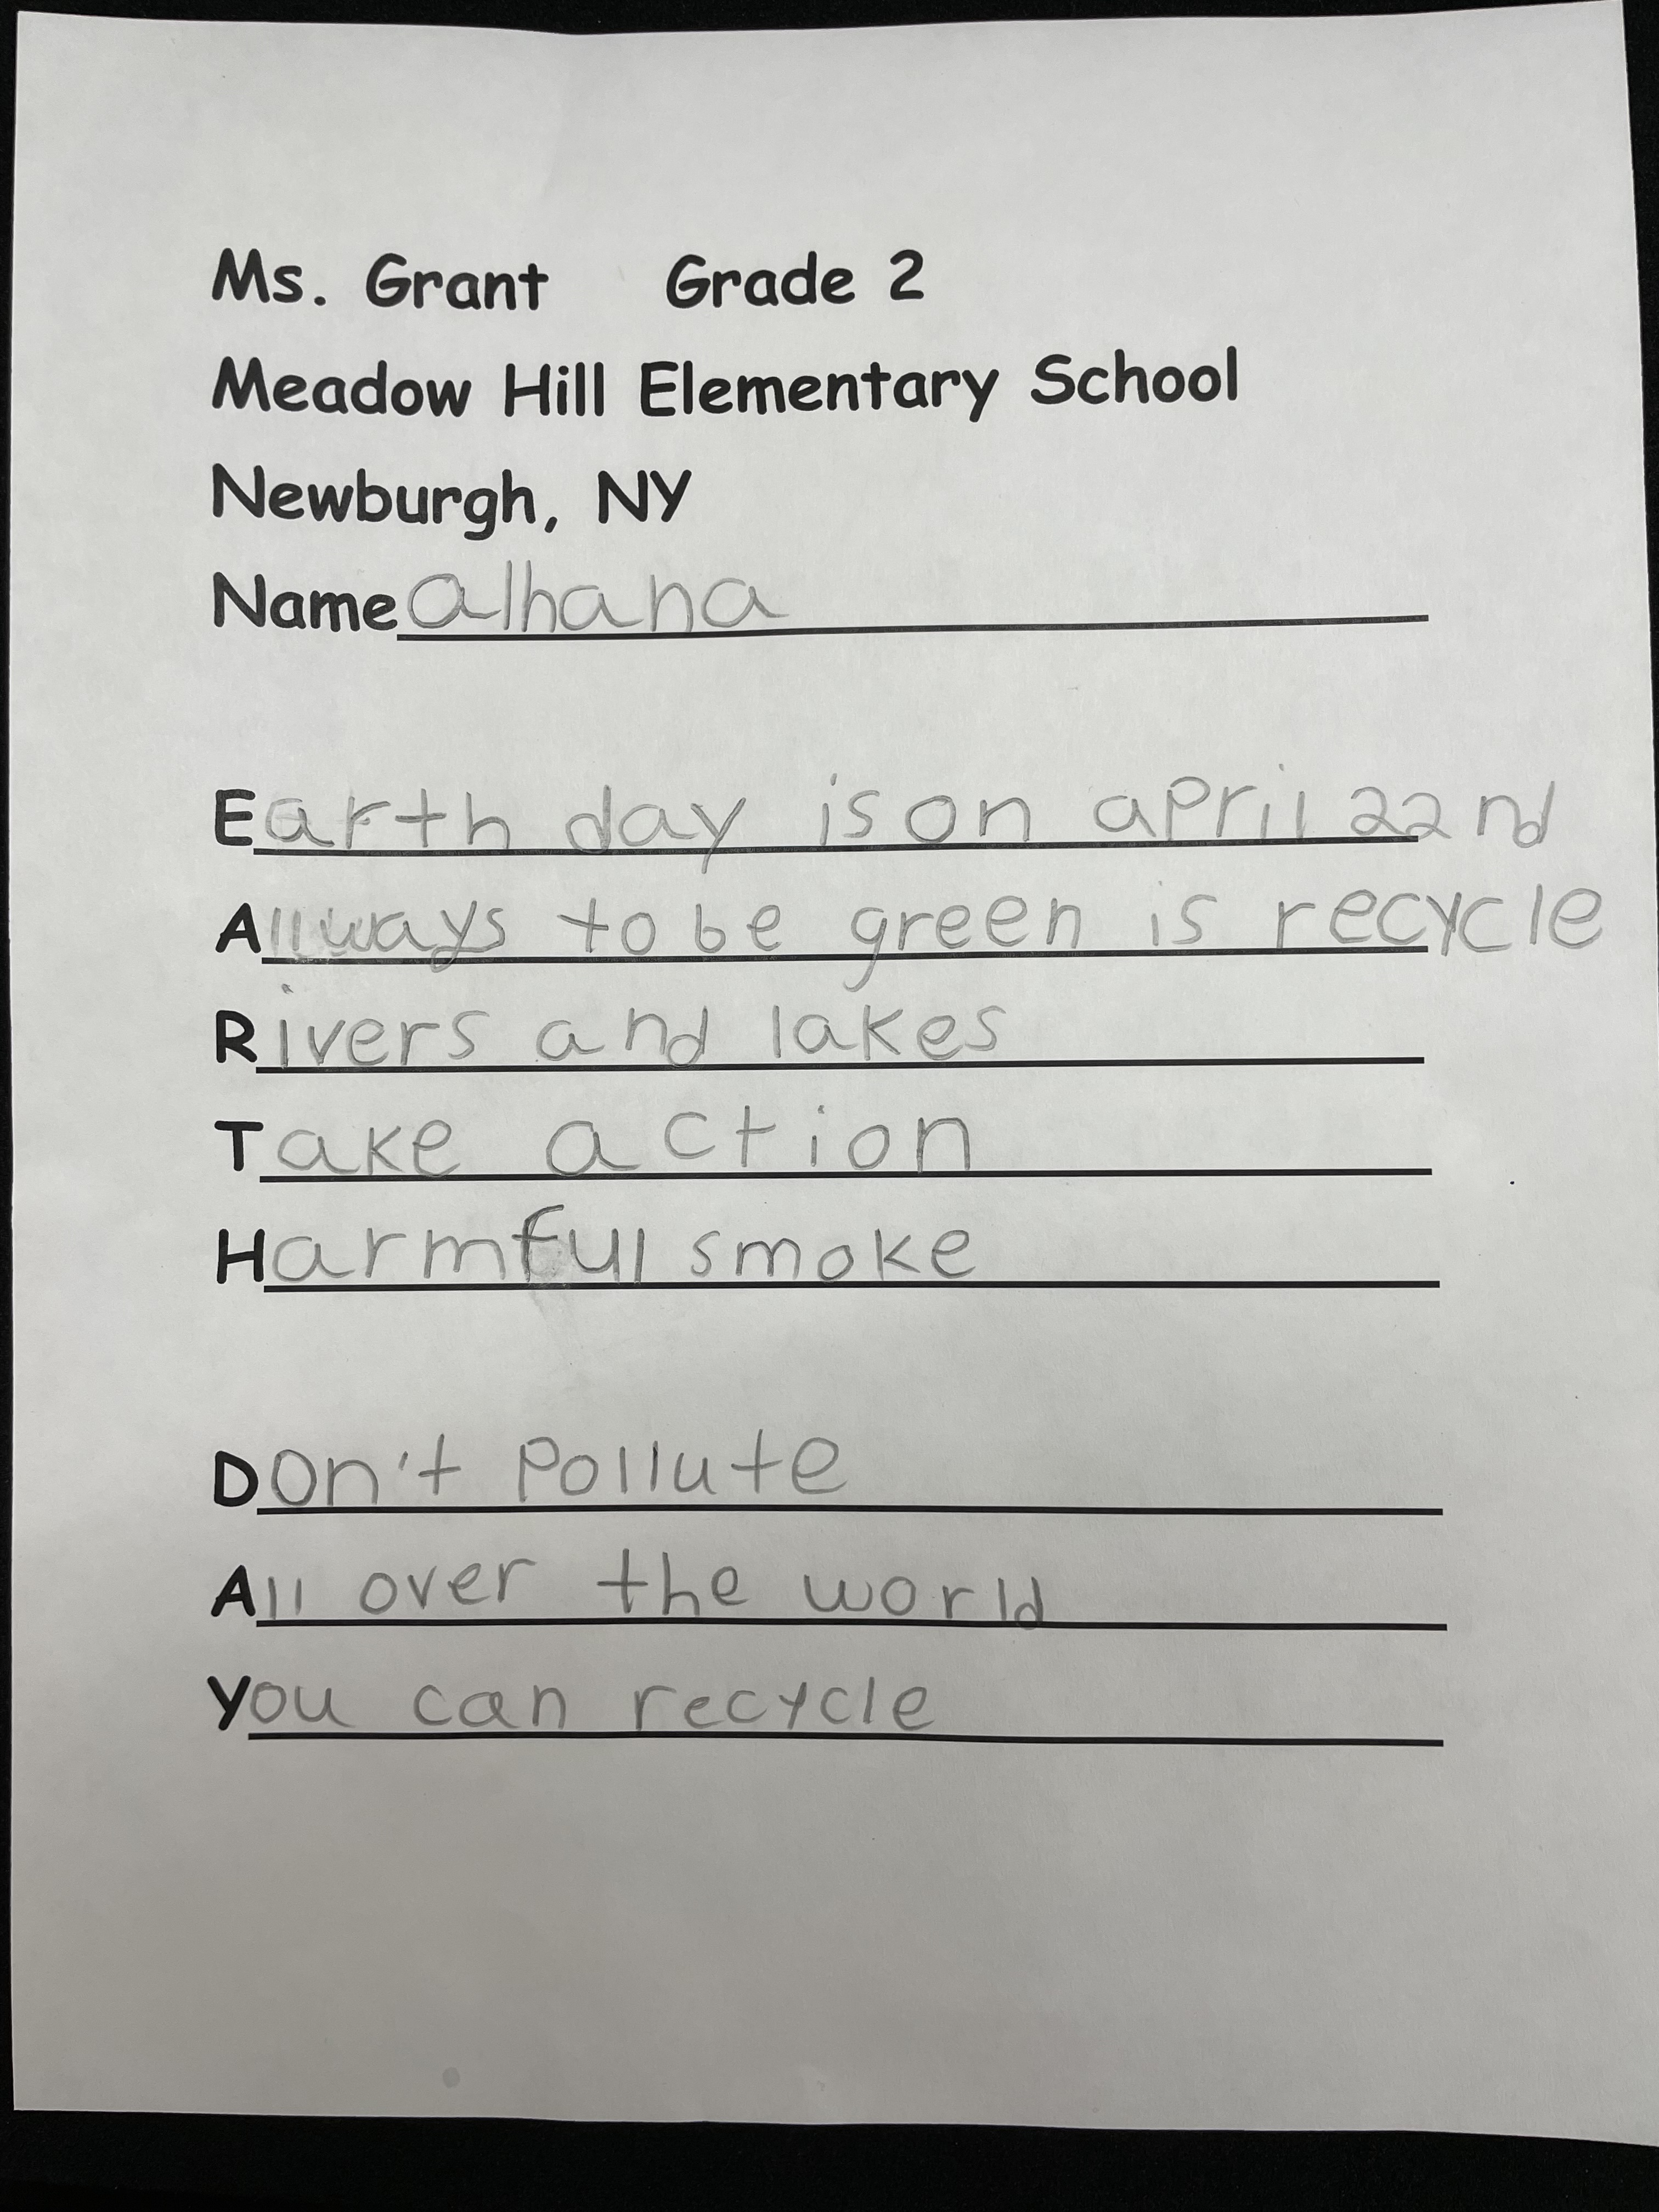 Ms. Grant Grade 2
Meadow Hill Elementary School
Newburgh, NY
Name alhana
Earth day is on april 22nd
Allways to be green is recycle
Rivers and lakes
Take action
Harmful smoke
Don't Pollute
All over the world
You can recycle